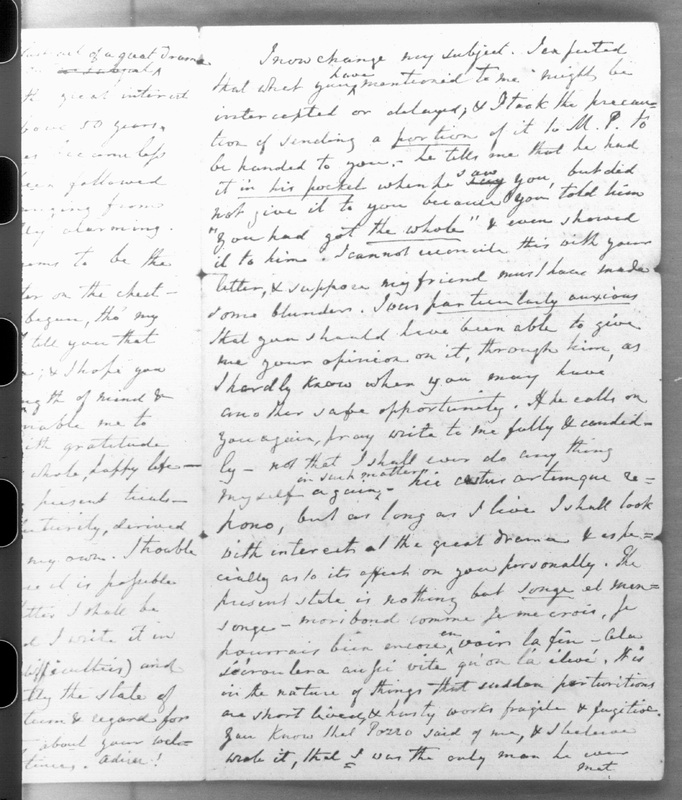 end of a great drama
great interest
50 years,
become less
been swallowed
alarming.
seems to be the
on the chest -
begun, tho' my
tell you that
; & I hope you
strength of mind &
enable me to
with gratitude
whole happy life -
present trials -
derived
my own. I trouble
it is possible
letter I shall be
I write it in
difficulties) and
the state of
esteem & regard for
about your
adieu!
I now change my subject. I expected
that what you have mentioned to me might be
intercepted or delayed, & I took the precau=
tion of sending a portion of it to M. P. to
be handed to you, - he tells me that he had
it in his pocket when he saw you, but did
not give it to you because you told him
"you had got the whole" & even showed
it to him. I cannot reconcile this with your
letter, & suppose my friend must have made
some blunders. I was particularly anxious
that you should have been able to give
me your opinion on it, through him, as
I hardly know when you may have
another safe opportunity. If he calls on
you again, pray write to me fully & candid-
ly - not that I shall ever do any thing
in such matters
myself again - hic cestus artemque re=
pono, but as long as I live I shall look
with interest at the great drama & espe=
cially as to its effect on you personally. The
present state is nothing but songe et men=
songe - moribond comme je me crois, je
pourrais bien encore en voir la fin - Cela
s'écroulera aussi vite qu'on l'a élevé. It is
in the nature of things that sudden parturitions
are short lived, & hasty works fragile & fugitive.
You know that Pozzo said of me, & I believe
wrote it, that I was the only man he ever
met